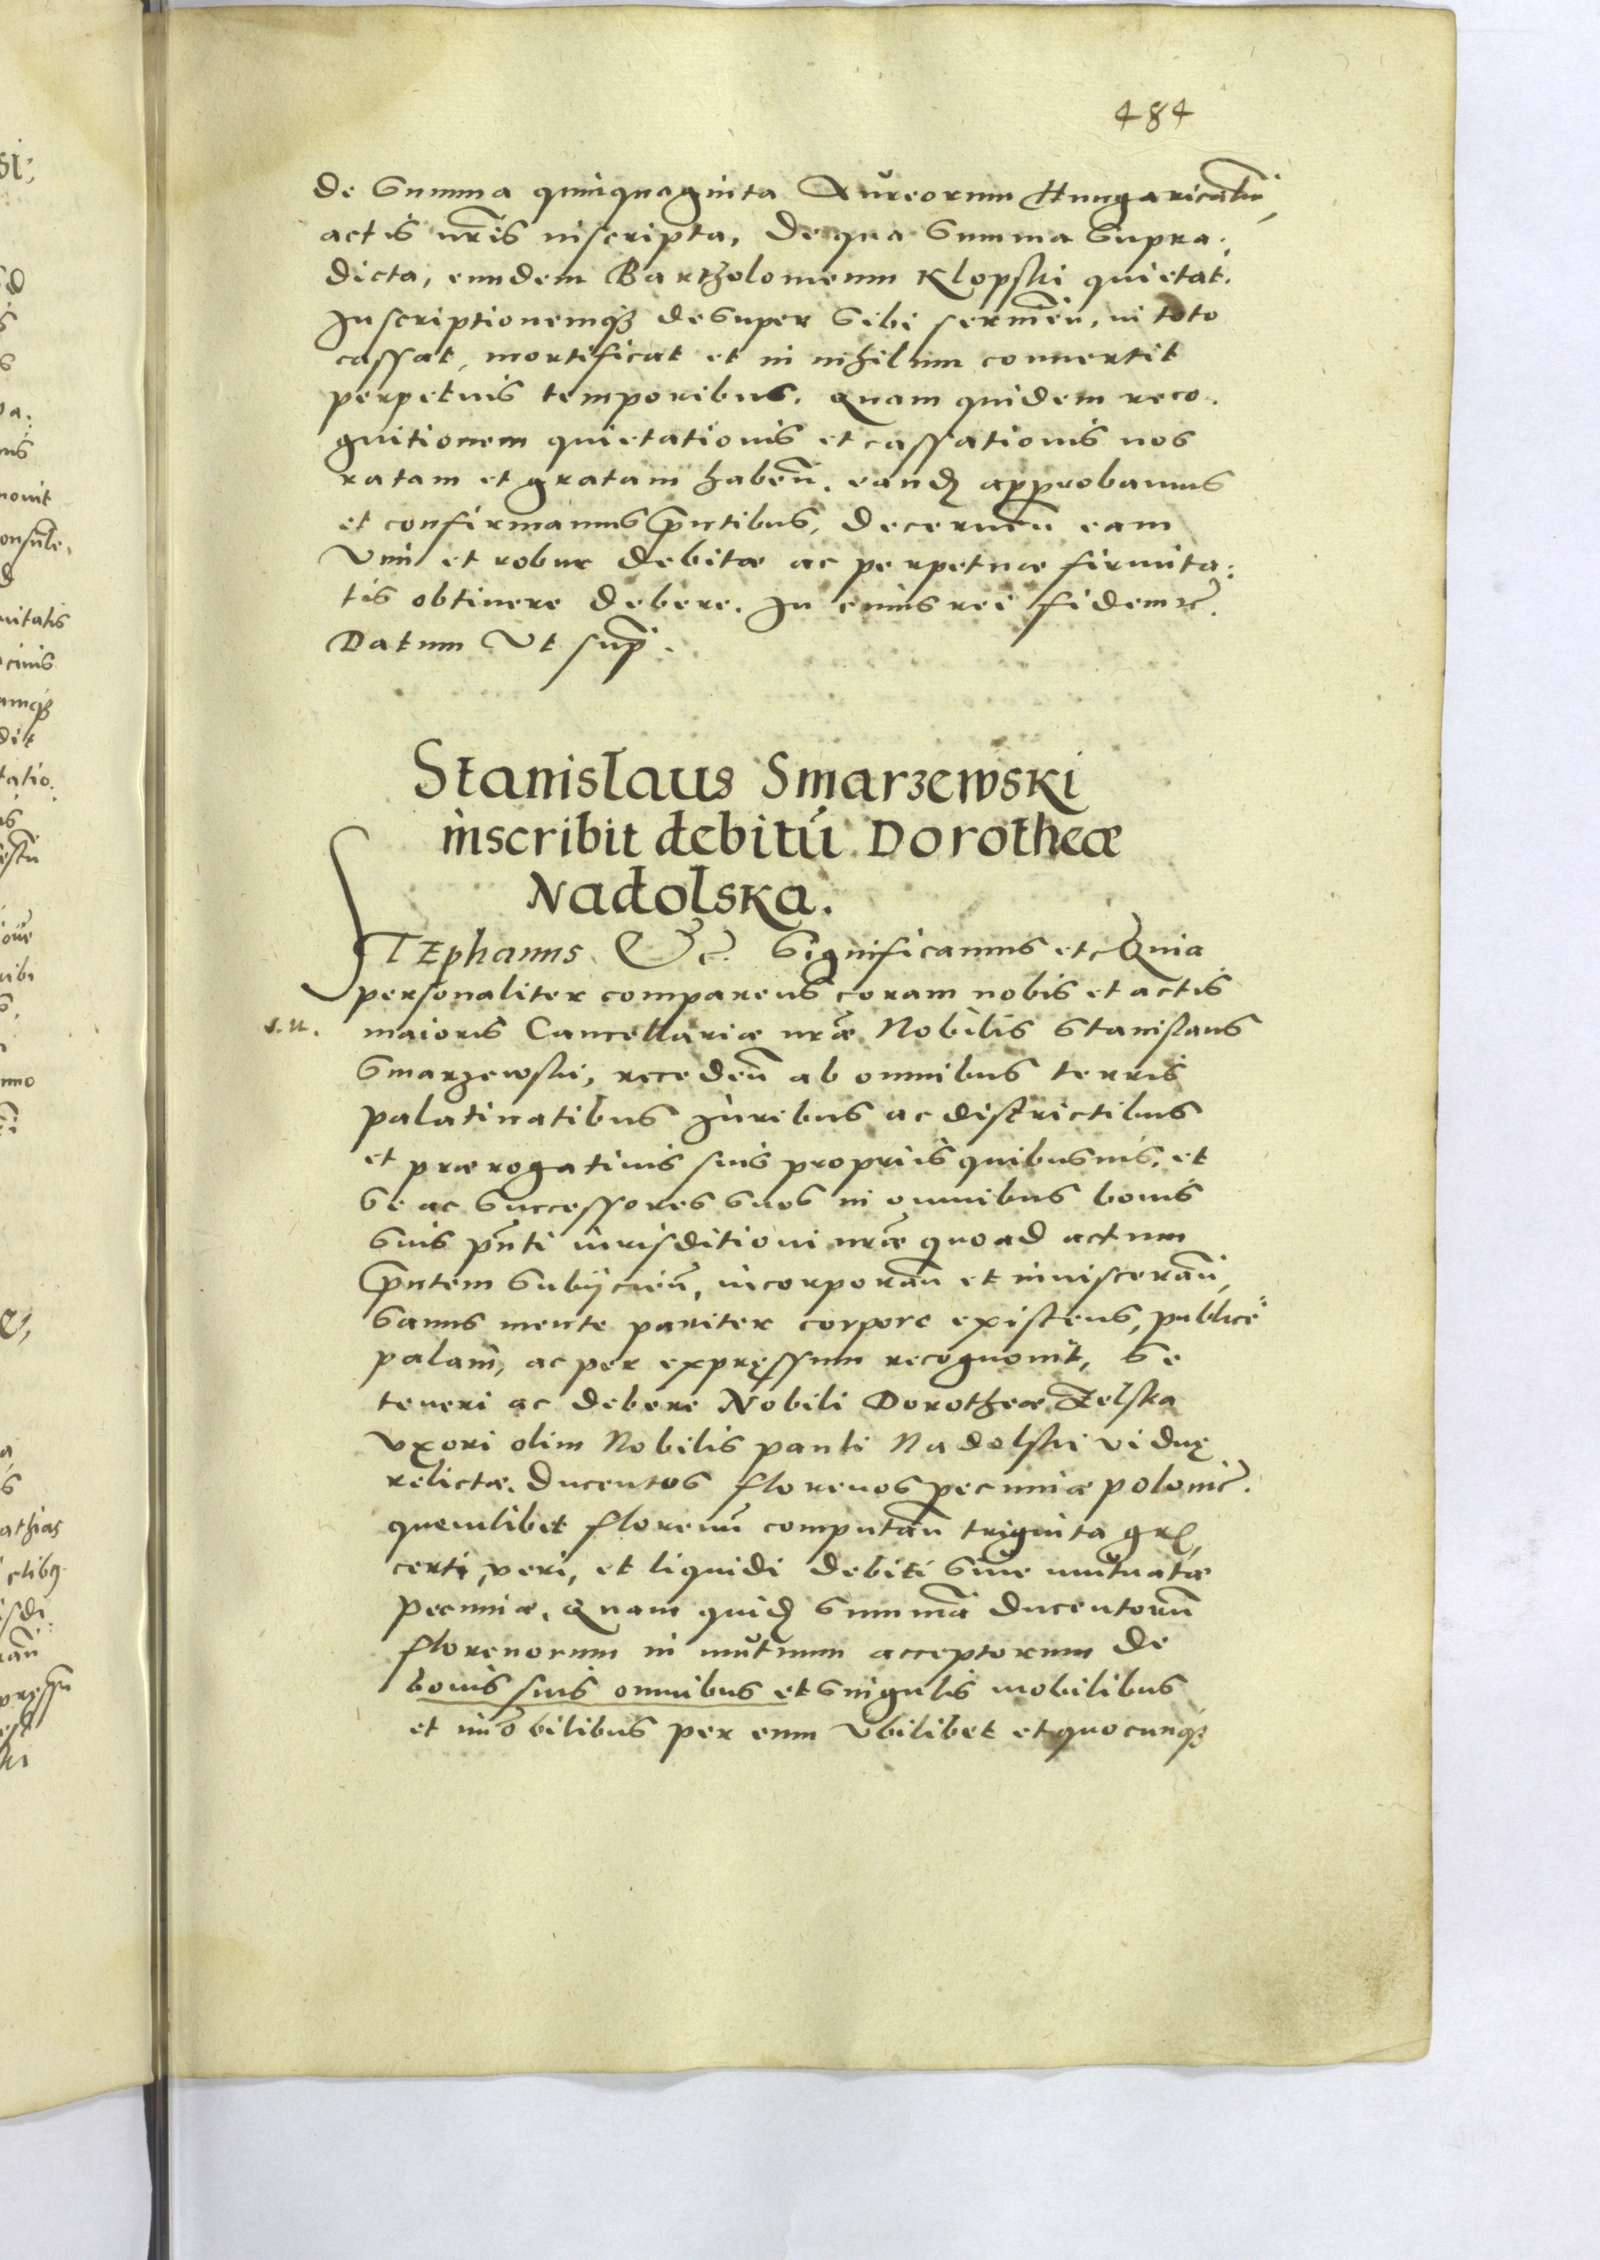 484
de summa quinquaginta Aureorum Hungaricaliũ,
actis nr̃is inscripta, de qua summa supra:
dicta, eundem Bartholomeum Klopski quietat.
Inscriptionemq3 desuper sibi
cassat, mortificat et in nihilum conuertit
perpetuis temporibus. Quam quidem reco:
gnitionem quietationis et cassationis nos
ratam et gratam habeñ. eand. approbamus
et confirmamus p̃ntibus, decerneñ eam
vim et robur debitæ ac perpetuæ firmita:
tis obtinere debere. In cuius rei fidem etc̃.
Datum Vt sup̃.
Stanislaus Smarzewski
inscribit debitũ Dorotheæ
Nadolska.
STEphanus. Etc̃. Significamus etc Quia
personaliter comparens coram nobis et actis
maioris Cancellariæ nr̃æ Nobilis Stanislaus
Smarzewski, recedeñ ab omnibus terris
palatinatibus Iuribus ac districtibus
et prærogatiuis suis propriis quibusuis, et
se ac successores suos in omnibus bonis
suis p̃nti iurisditioni nr̃æ quoad actum
p̃ntem subijcieñ, incorporañ et inuiscerañ,
sanus mente pariter corpore existens, publicè
palam, ac per expręssum recognouit, se
teneri ac debere Nobili Dorotheæ Zelska
vxori olim Nobilis pauli Nadolski viduę
relictæ. Ducentos florenos pecuniæ polonic̃.
quemlibet florenũ computañ triginta gr.
certi, veri, et liquidi debiti siue mutuatæ
pecuniæ. Quam quid. summã ducentorũ
florenorum in mutuum acceptorum de
bonis suis omnibus et singulis mobilibus
et im̃obilibus per eum vbilibet et quocunq3